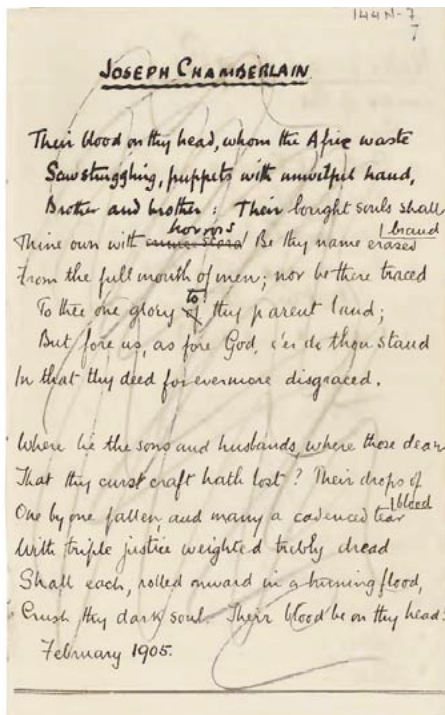 144N-7
7
JOSEPH CHAMBERLAIN
Their blood on thy head, whom the Afric waste
Saw struggling, puppets with unwitful hand,
Brother and brother: Their bought souls shall brand
Thine own with horrors! Be thy name erased
From the full mouth of men; nor be there traced
To thee one glory to thy parent land;
But fore us, as fore God, e'er do thou stand
In that thy deed forevermore disgraced.
Where lie the sons and husbands, where those dear
That thy curst craft hath lost? Their drops of blood
One by one fallen, and many a cadenced tear
With triple justice weighted trebly dread
Shall each, rolled onward in a burning flood,
Crush thy dark soul. Their blood be on thy head!
February 1905.